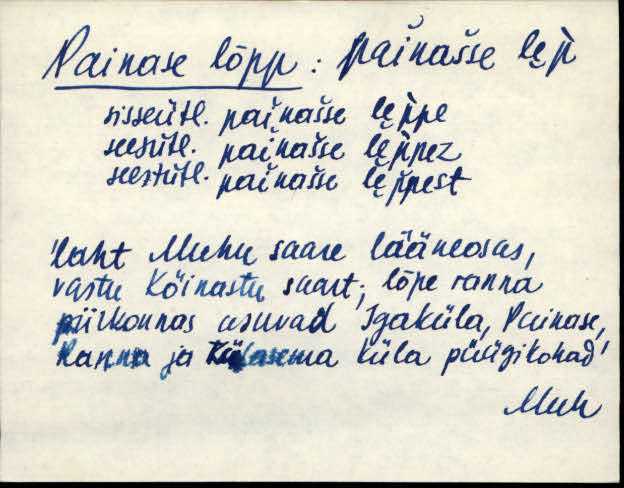 Painase lõpp : pai̮našse lę̀p̀
sisseütl. pai̮našse lę̀p̀pe
seesütl. pai̮našse lę̀p̀pez
seestütl. pai̮našse lę̀p̀pest
'laht Muhu saare lääneosas,
vastu Kõinastu saart; lõpe ranna
piirkonnas asuvad Igaküla, Painase,
Ranna ja Külasema küla püügikohad'
Muh